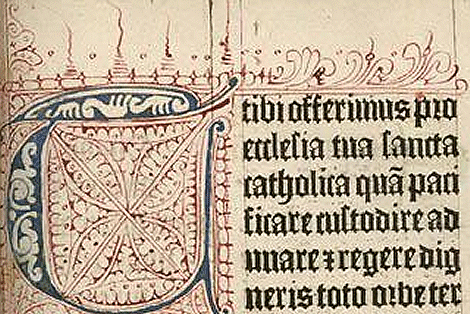 tibi offerimus pro
ecclesia tua sancta
catholica quã paci
ficare custodire ad
unare ⁊ regere dig
neris toto orbe ter